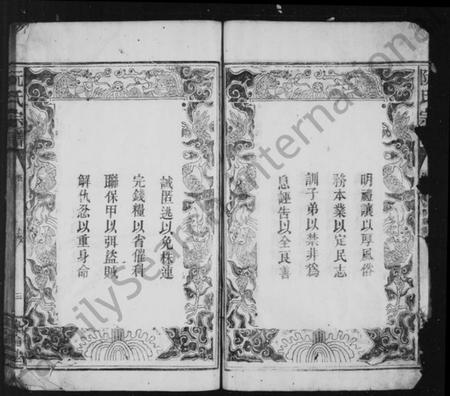 明禮讓以厚風俗
務本業以定民志
訓子弟以禁非為
息誣告以全良善
誡匿逃以免株連
完錢糧以省催科
聯保甲以弭盜賊
解仇忿以重身命
阮氏宗譜
三
FamilySearch International